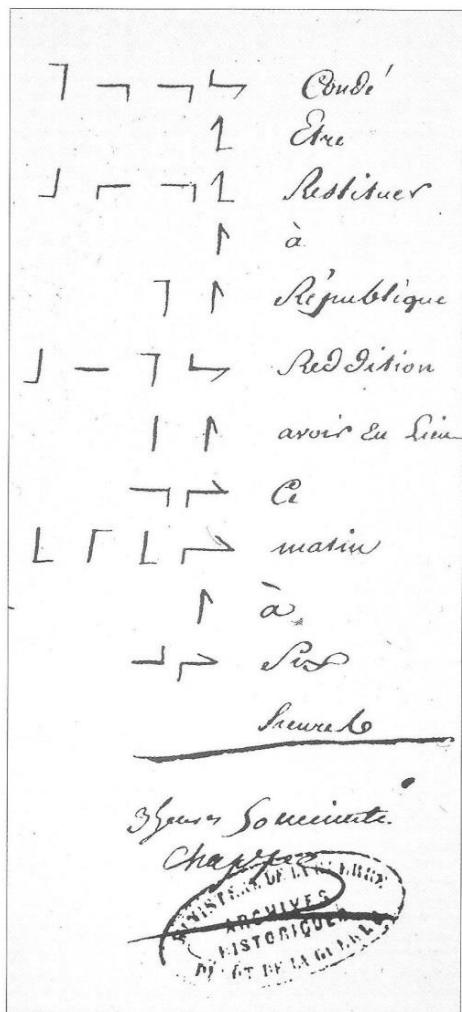 Condé
Etre
Restituer
à
République
Reddition
avoir Eu Lieu
Ce
matin
à
Six
heures
3 heures
Chappe
MINISTERE DE LA GUERRE
ARCHIVES
HISTORIQUES
DEPOT DE LA GUERRE